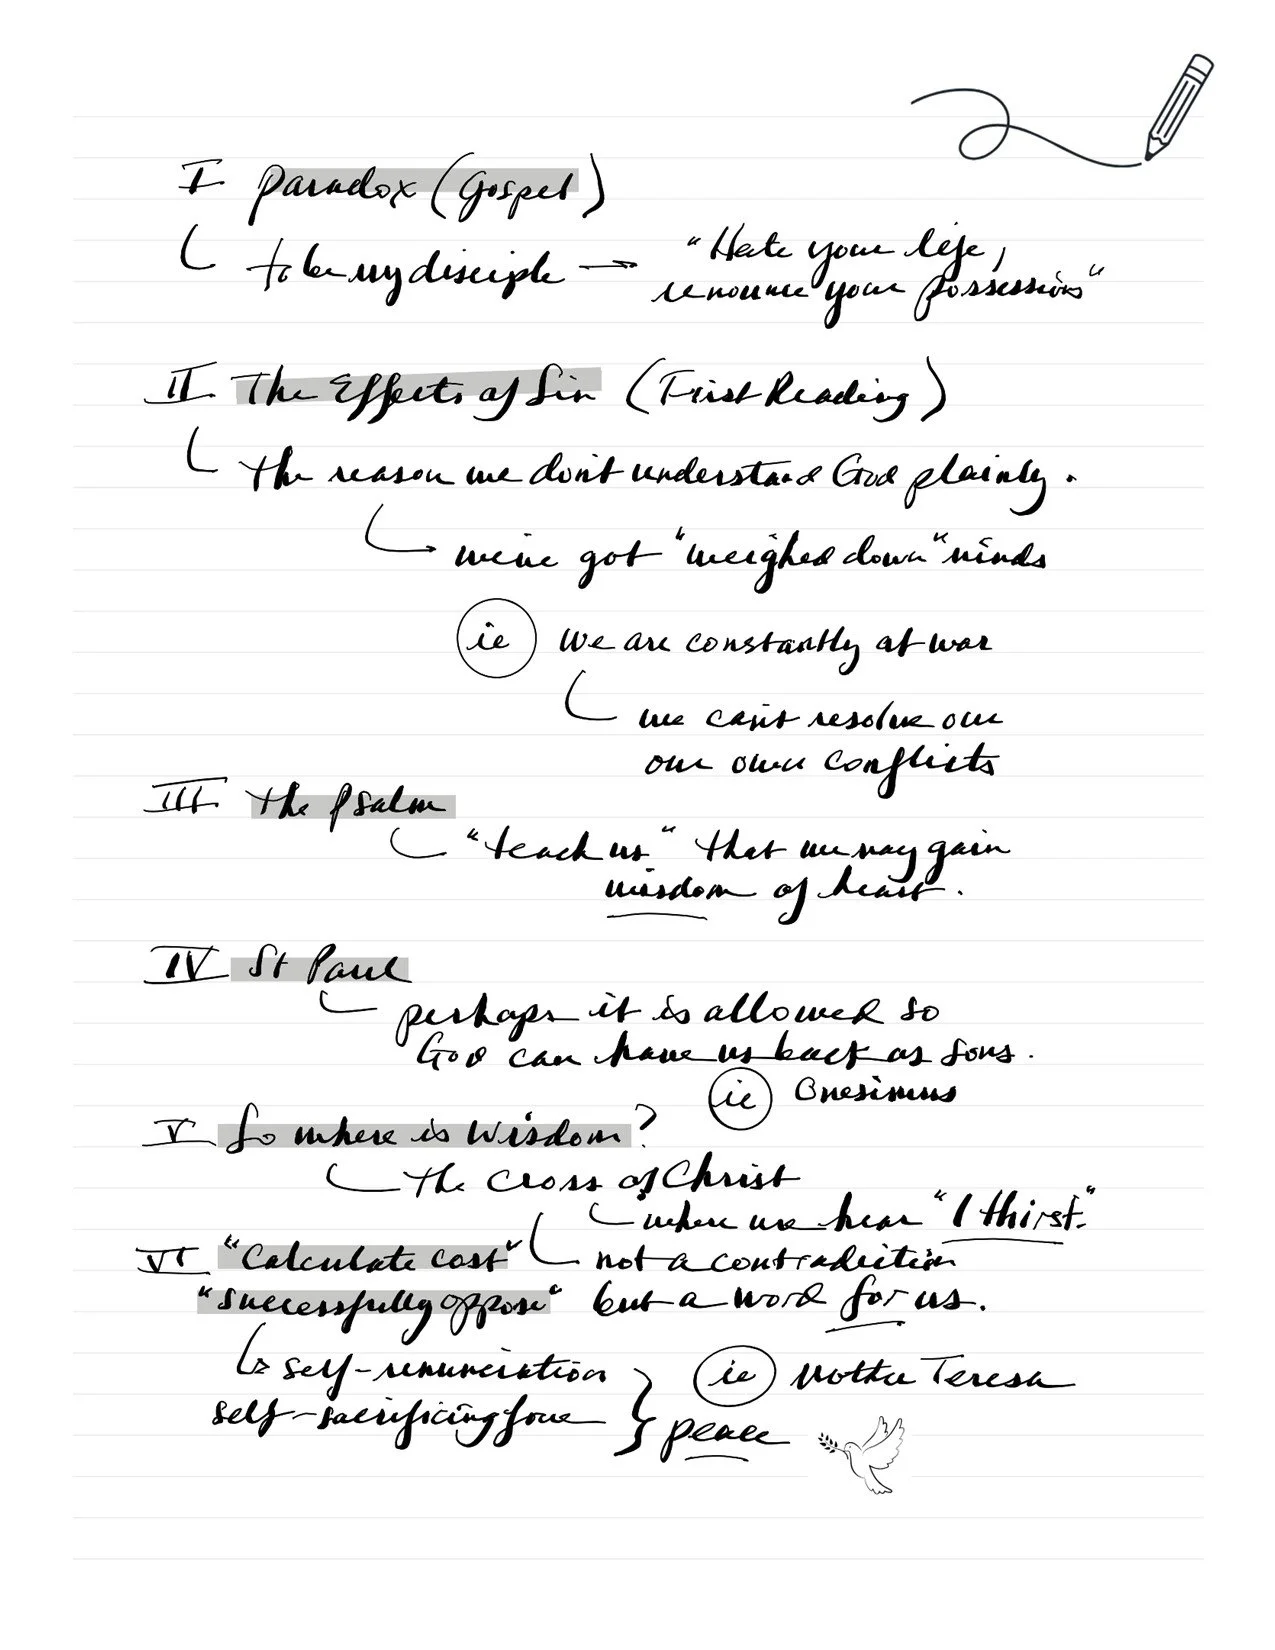 I. Paradox (Gospel)
to be my disciple → "Hate your life,
renounce your possessions"
II. The Effects of Sin (First Reading)
the reason we don't understand God plainly.
we've got "weighed down" minds
ie we are constantly at war
we can't resolve our
our own conflicts
III. the Psalm
"teach us" that we may gain
wisdom of heart.
IV St Paul
perhaps it is allowed so
God can have us back as sons.
ie Onesimus
V So where is Wisdom?
the cross of Christ
where we hear "I thirst."
VI "Calculate cost" not a contradiction
"successfully oppose" but a word for us.
self-renunciation ie Mother Teresa
self-sacrificing love } peace